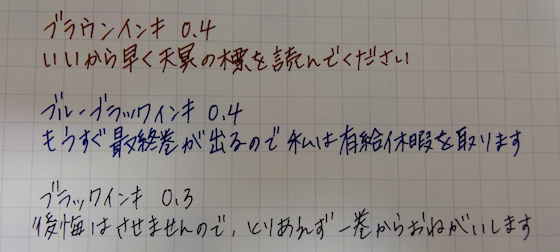 ブラウンインキ 0.4
いいから早く天冥の標を読んでください
ブルーブラックインキ 0.4
もうすぐ最終巻が出るので私は有給休暇を取ります
ブラックインキ 0.3
後悔はさせませんので、とりあえず一巻からおねがいします